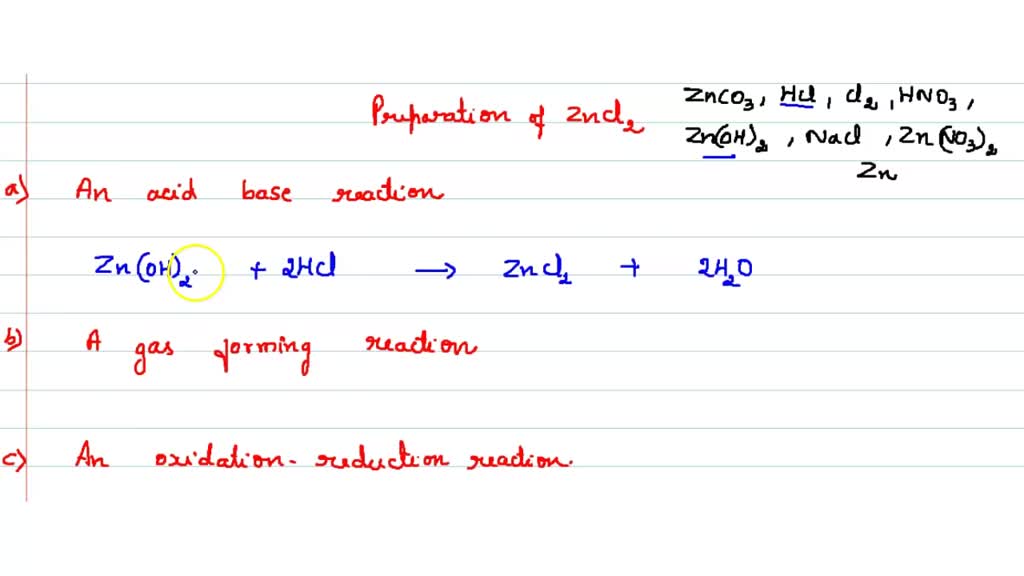 Preparation of ZnCl2
ZnCO3, HCl, Cl2, HNO3,
Zn(OH)2, NaCl, Zn(NO3)2
Zn
a) An acid base reaction
Zn(OH)2 + 2HCl → ZnCl2 + 2H2O
b) A gas forming reaction
c) An oxidation-reduction reaction.